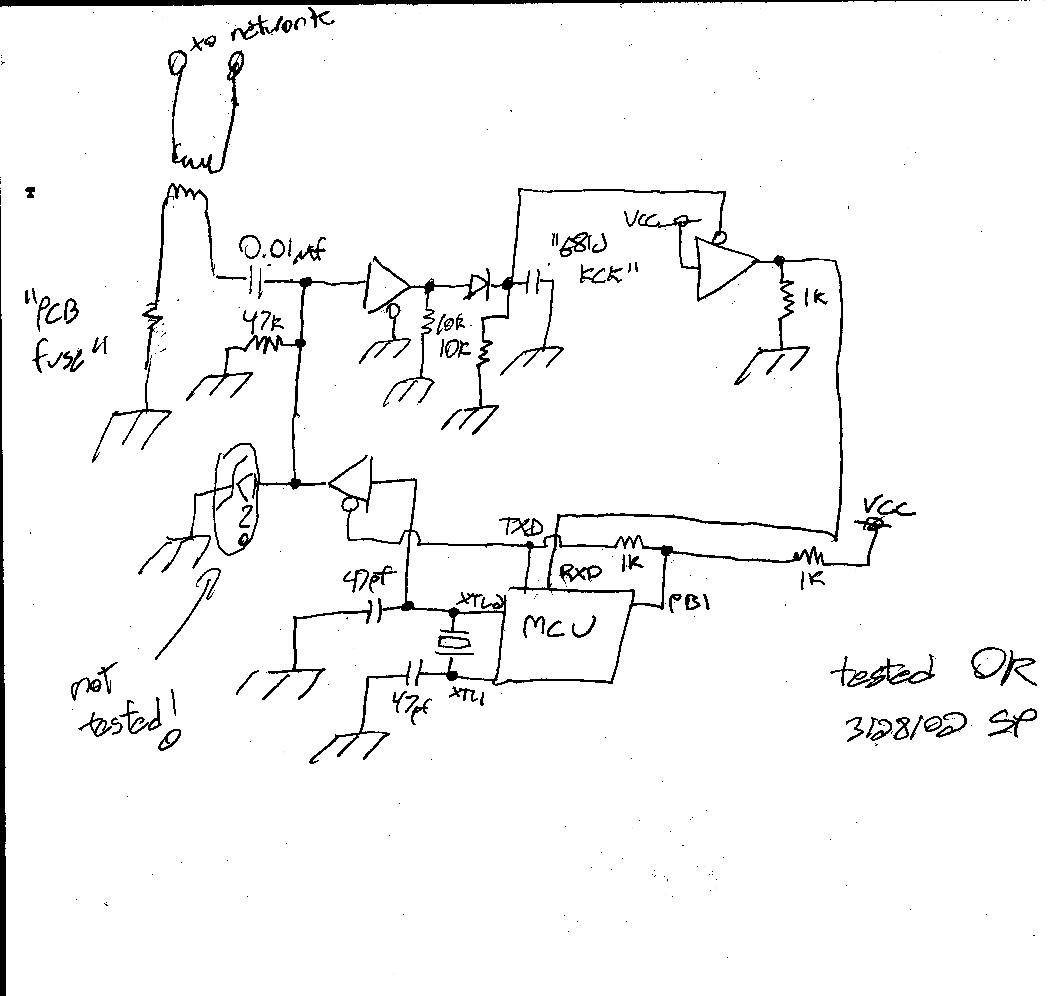 xo network
0.01µf
VCC
"681J
KCK"
"PCB
fuse"
47k
10k
10k
1k
VCC
TXD
47pf
XTL2
RXD
1k
1k
PB1
MCU
47pf
XTL1
2
not
tested!
tested OK
3/28/02 SP